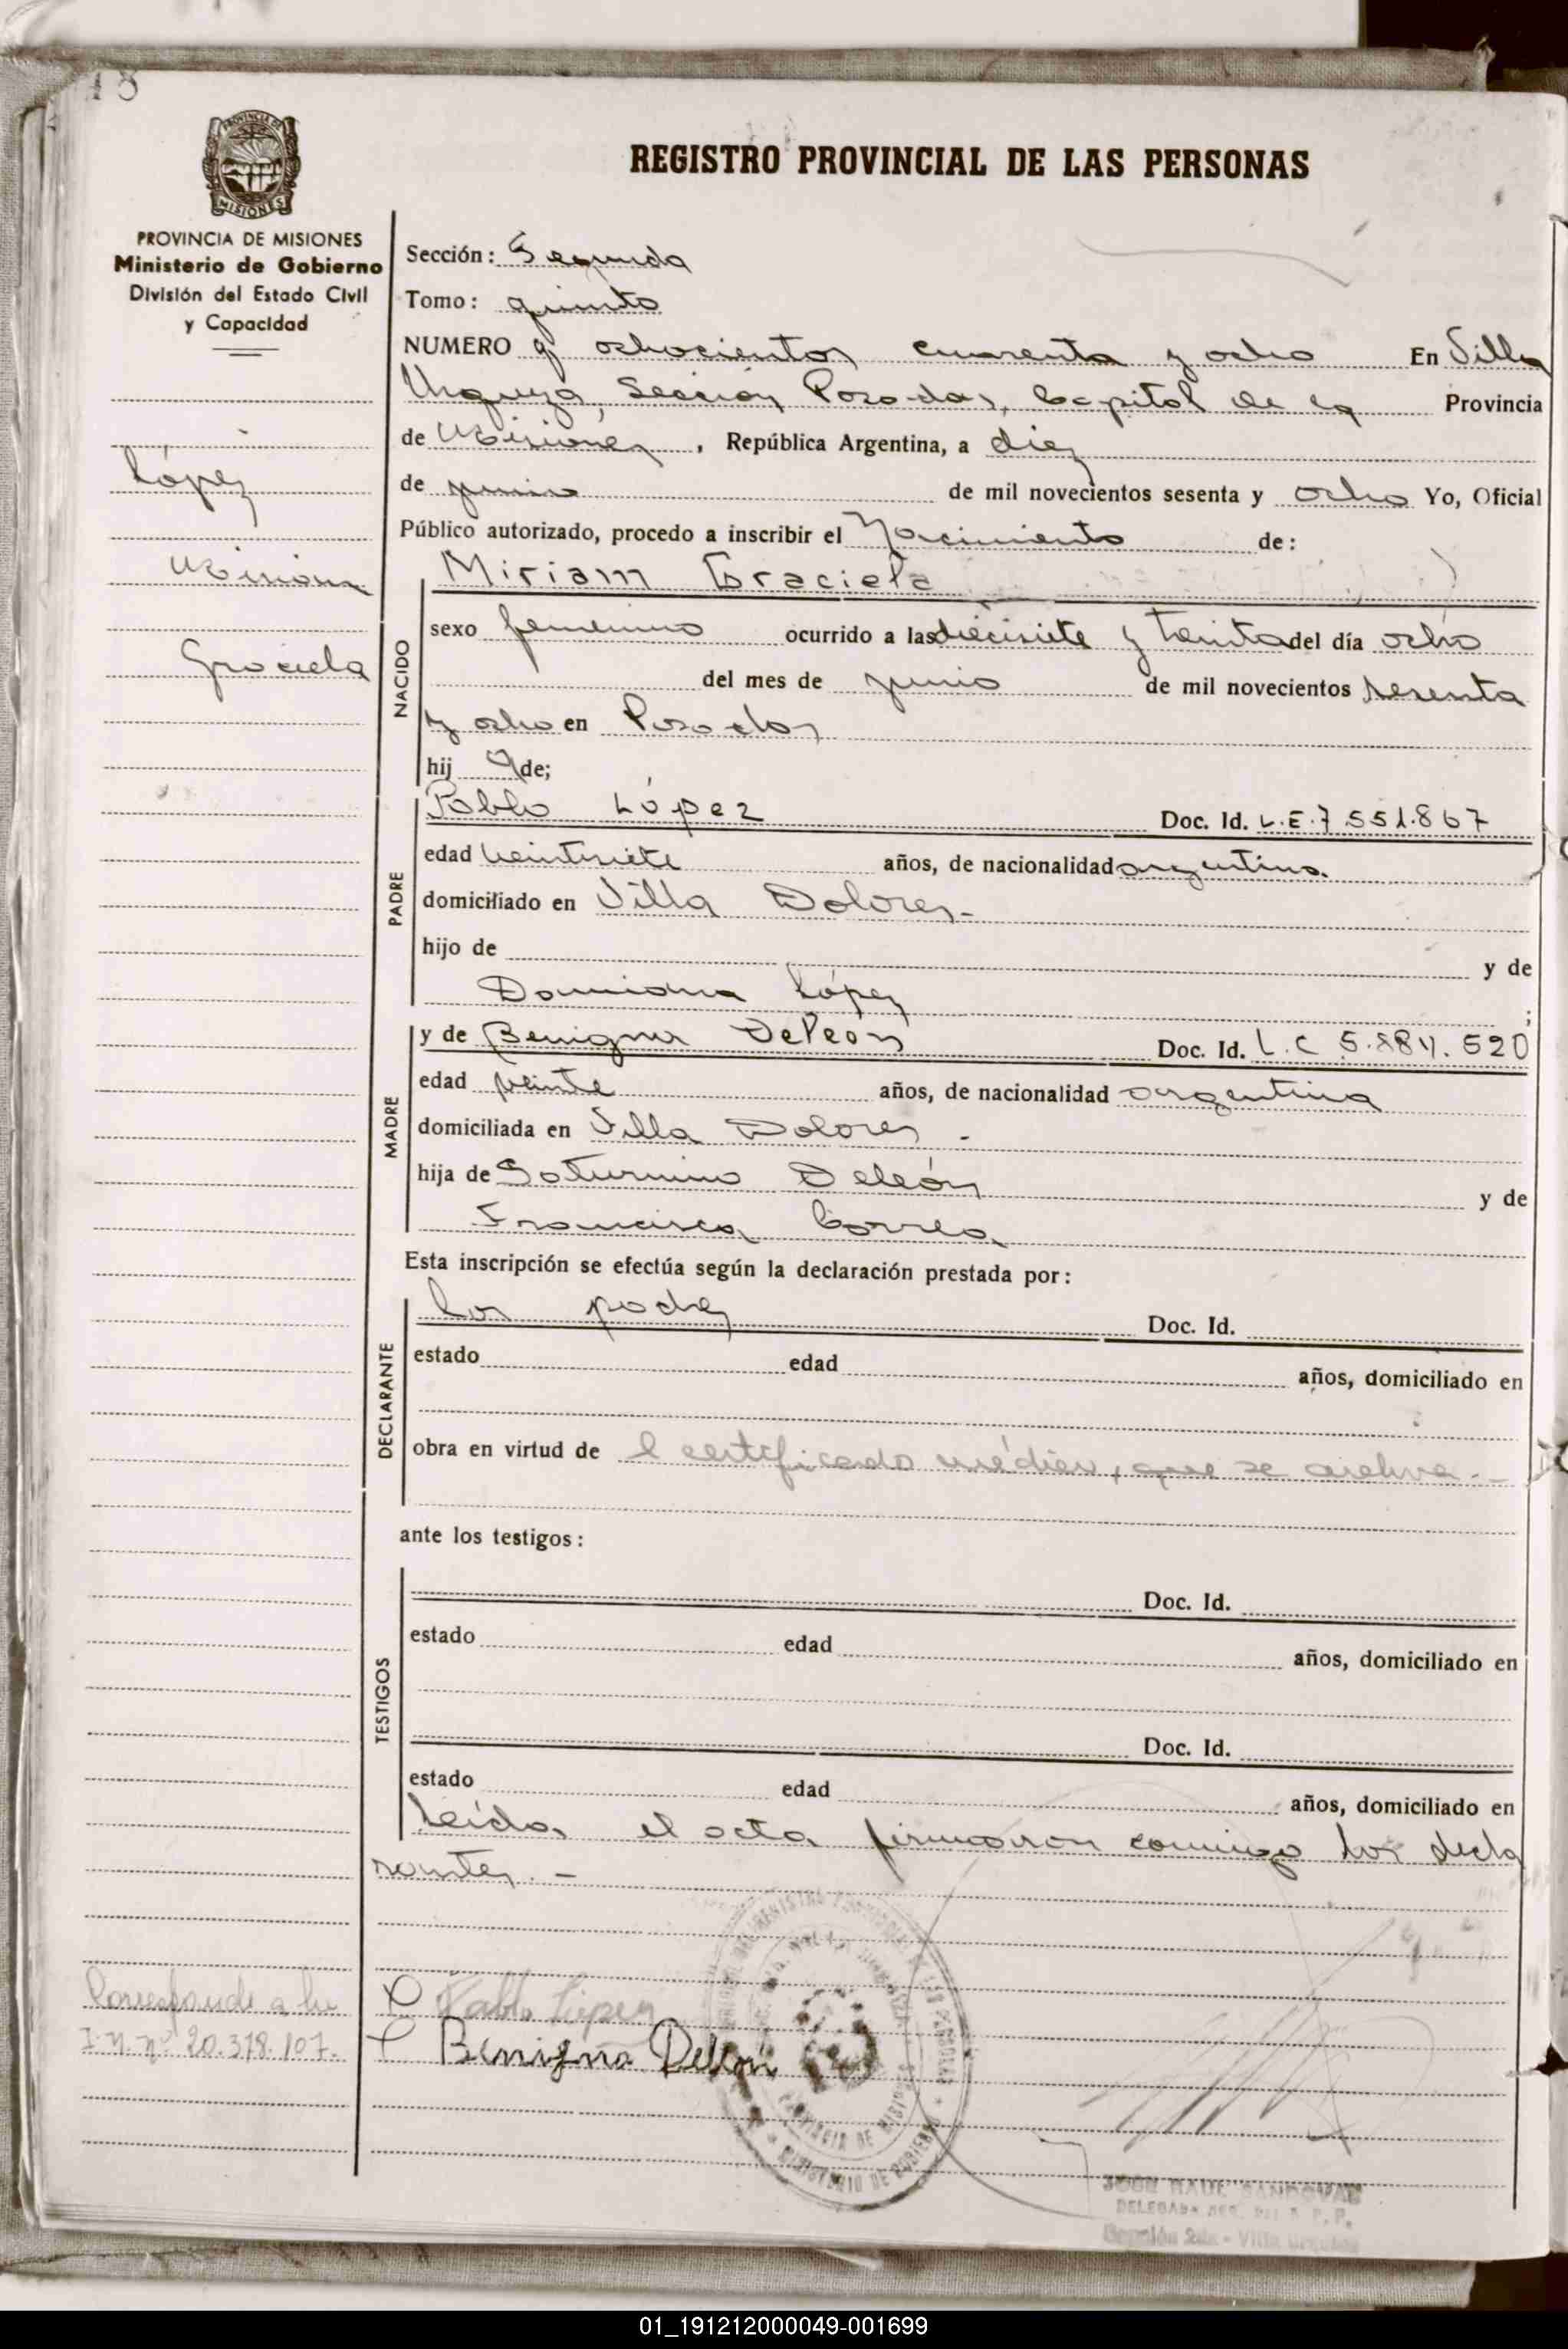 18
REGISTRO PROVINCIAL DE LAS PERSONAS
PROVINCIA DE MISIONES
Ministerio de Gobierno
División del Estado Civil
y Capacidad
López
Graciela
Sección: Segunda
Tomo: quinto
NUMERO ochocientos cuarenta y ocho En Villa
Urquiza, Sección Posadas, Capital de la Provincia
de Misiones, República Argentina, a diez
de junio de mil novecientos sesenta y ocho Yo, Oficial
Público autorizado, procedo a inscribir el Nacimiento de:
Miriam Graciela
NACIDO
sexo femenino ocurrido a las diecisiete y treinta del día ocho
del mes de junio de mil novecientos sesenta
y ocho en Posadas
hij a de;
PADRE
Pablo López Doc. Id. L.E. 7.551.867
edad veintisiete años, de nacionalidad argentino.
domiciliado en Villa Dolores-
hijo de y de
López ;
MADRE
y de Benigna Deleón Doc. Id. L.C 5.884.520
edad veinte años, de nacionalidad argentina
domiciliada en Villa Dolores -
hija de Saturnino Deleón y de
Francisca Correa
Esta inscripción se efectúa según la declaración prestada por:
DECLARANTE
los padres Doc. Id.
estado edad años, domiciliado en
obra en virtud de l certificado médico, que se archiva.-
ante los testigos:
TESTIGOS
Doc. Id.
estado edad años, domiciliado en
Doc. Id.
estado edad años, domiciliado en
Leída el acta firmaron conmigo los decla
rantes. -
Corresponde a la
I.N. nº 20.378.107.
Pablo López
Benigna Deleón
PROVINCIA DE MISIONES
MINISTERIO DE GOBIERNO
JOSE RAUL SANDOVAL
01_191212000049-001699